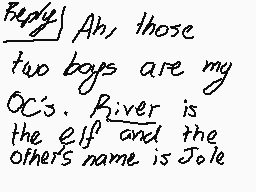 Reply
Ah, those
two boys are my
OC's. River is
the elf and the
other's name is Jole